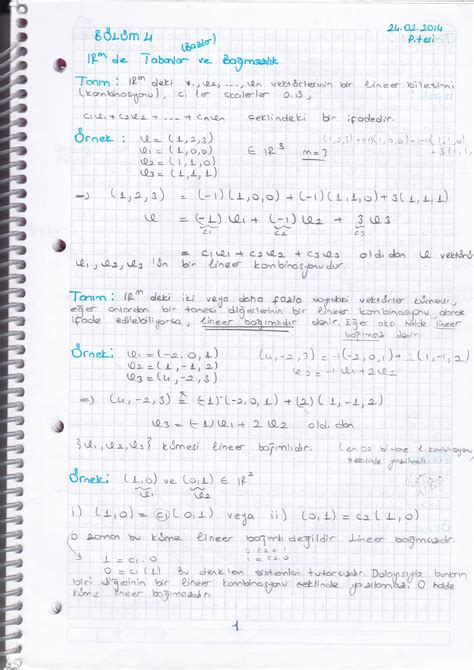 BÖLÜM 4
24.02.2014
P.tesi
(Bazlar)
IRᵐ de Tabanlar ve Bağımsızlık
Tanım: IRᵐ deki v₁, v₂, ..., vₙ vektörlerinin bir lineer bileşimi
(kombinasyonu), ci ler skalerler o.ü,
c₁v₁+c₂v₂+ ... + cₙvₙ şeklindeki bir ifadedir.
Örnek: v = (1,2,3)
v₁ = (1,0,0) ∈ IR³ m=3
v₂ = (1,1,0)
v₃ = (1,1,1)
(1,2,3) = (-1)(1,0,0)+(-1)(1,1,0)
+3(1,1,1)
⇒ (1,2,3) = (-1)(1,0,0) + (-1)(1,1,0) + 3(1,1,1)
v = (-1)v₁ + (-1)v₂ + 3v₃
c₁ c₂ c₃
= c₁v₁ + c₂v₂ + c₃v₃ oldıdan v vektörü
v₁, v₂, v₃ 'ün bir lineer kombinasyonudur.
Tanım: IRᵐ deki iki veya daha fazla sayıdaki vektörler kümesi,
eğer onlardan bir tanesi diğerlerinin bir lineer kombinasyonu olarak
ifade edilebiliyorsa, lineer bağımlıdır denir. Eğer aksi halde lineer
bağımsız denir.
Örnek: v₁ = (-2,0,1)
v₂ = (1,-1,2)
v₃ = (4,-2,3)
(4,-2,3) = -1(-2,0,1) + 2(1,-1,2)
v₃ = -1v₁ + 2v₂
⇒ (4,-2,3) = (-1)·(-2,0,1) + (2)(1,-1,2)
v₃ = (-1)v₁ + 2v₂ oldıdan
{v₁, v₂, v₃} kümesi lineer bağımlıdır.
(en az bi tane l. kombinasyonu
şeklinde yazılmalı)
Örnek: (1,0) ve (0,1) ∈ IR²
v₁ v₂
i) (1,0) = c₁(0,1) veya ii) (0,1) = c₂(1,0)
O zaman bu küme lineer bağımlı değildir. Lineer bağımsızdır.
1 = c₁.0
0 = c₁(1)
0.c₂ = 1
1 = c₂.0
Bu denklem sistemleri tutarsızdır. Dolayısıyla bunların
biri diğerinin bir lineer kombinasyonu şeklinde yazılamaz. O halde
küme lineer bağımsızdır.
1